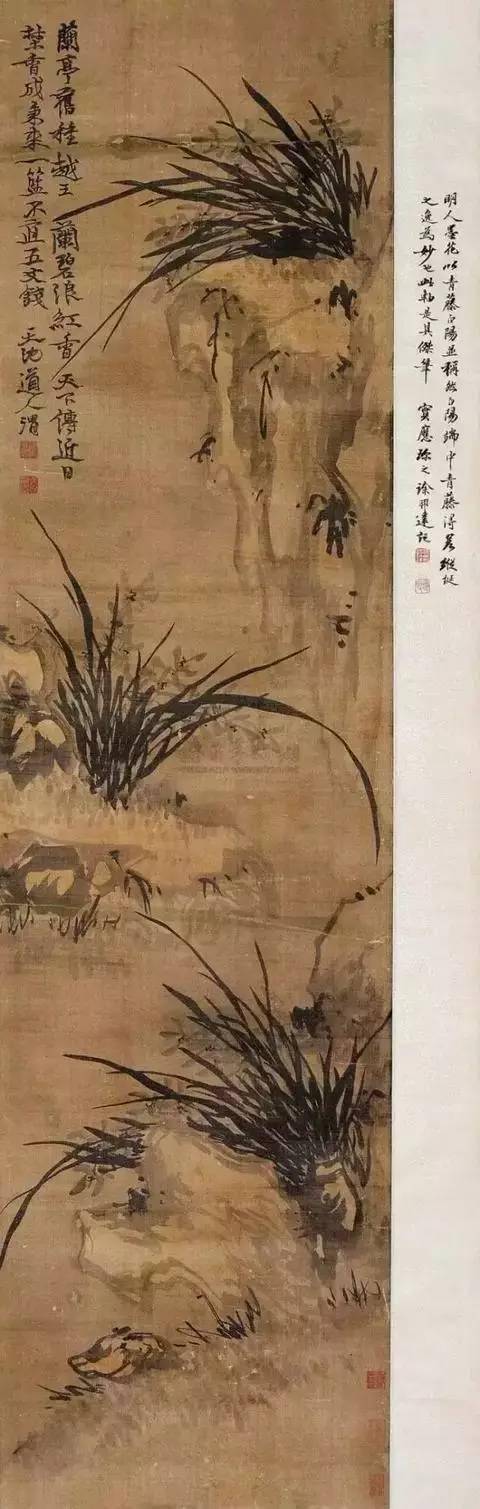 明人墨花以青藤白陽並稱然白陽端中青藤得縱
之逸為妙也此軸是其傑筆 寶應 之徐邦達記
蘭亭舊種越王蘭碧浪紅香天下傳近日
埜香成秉束一籃不直五文錢 天池道人渭